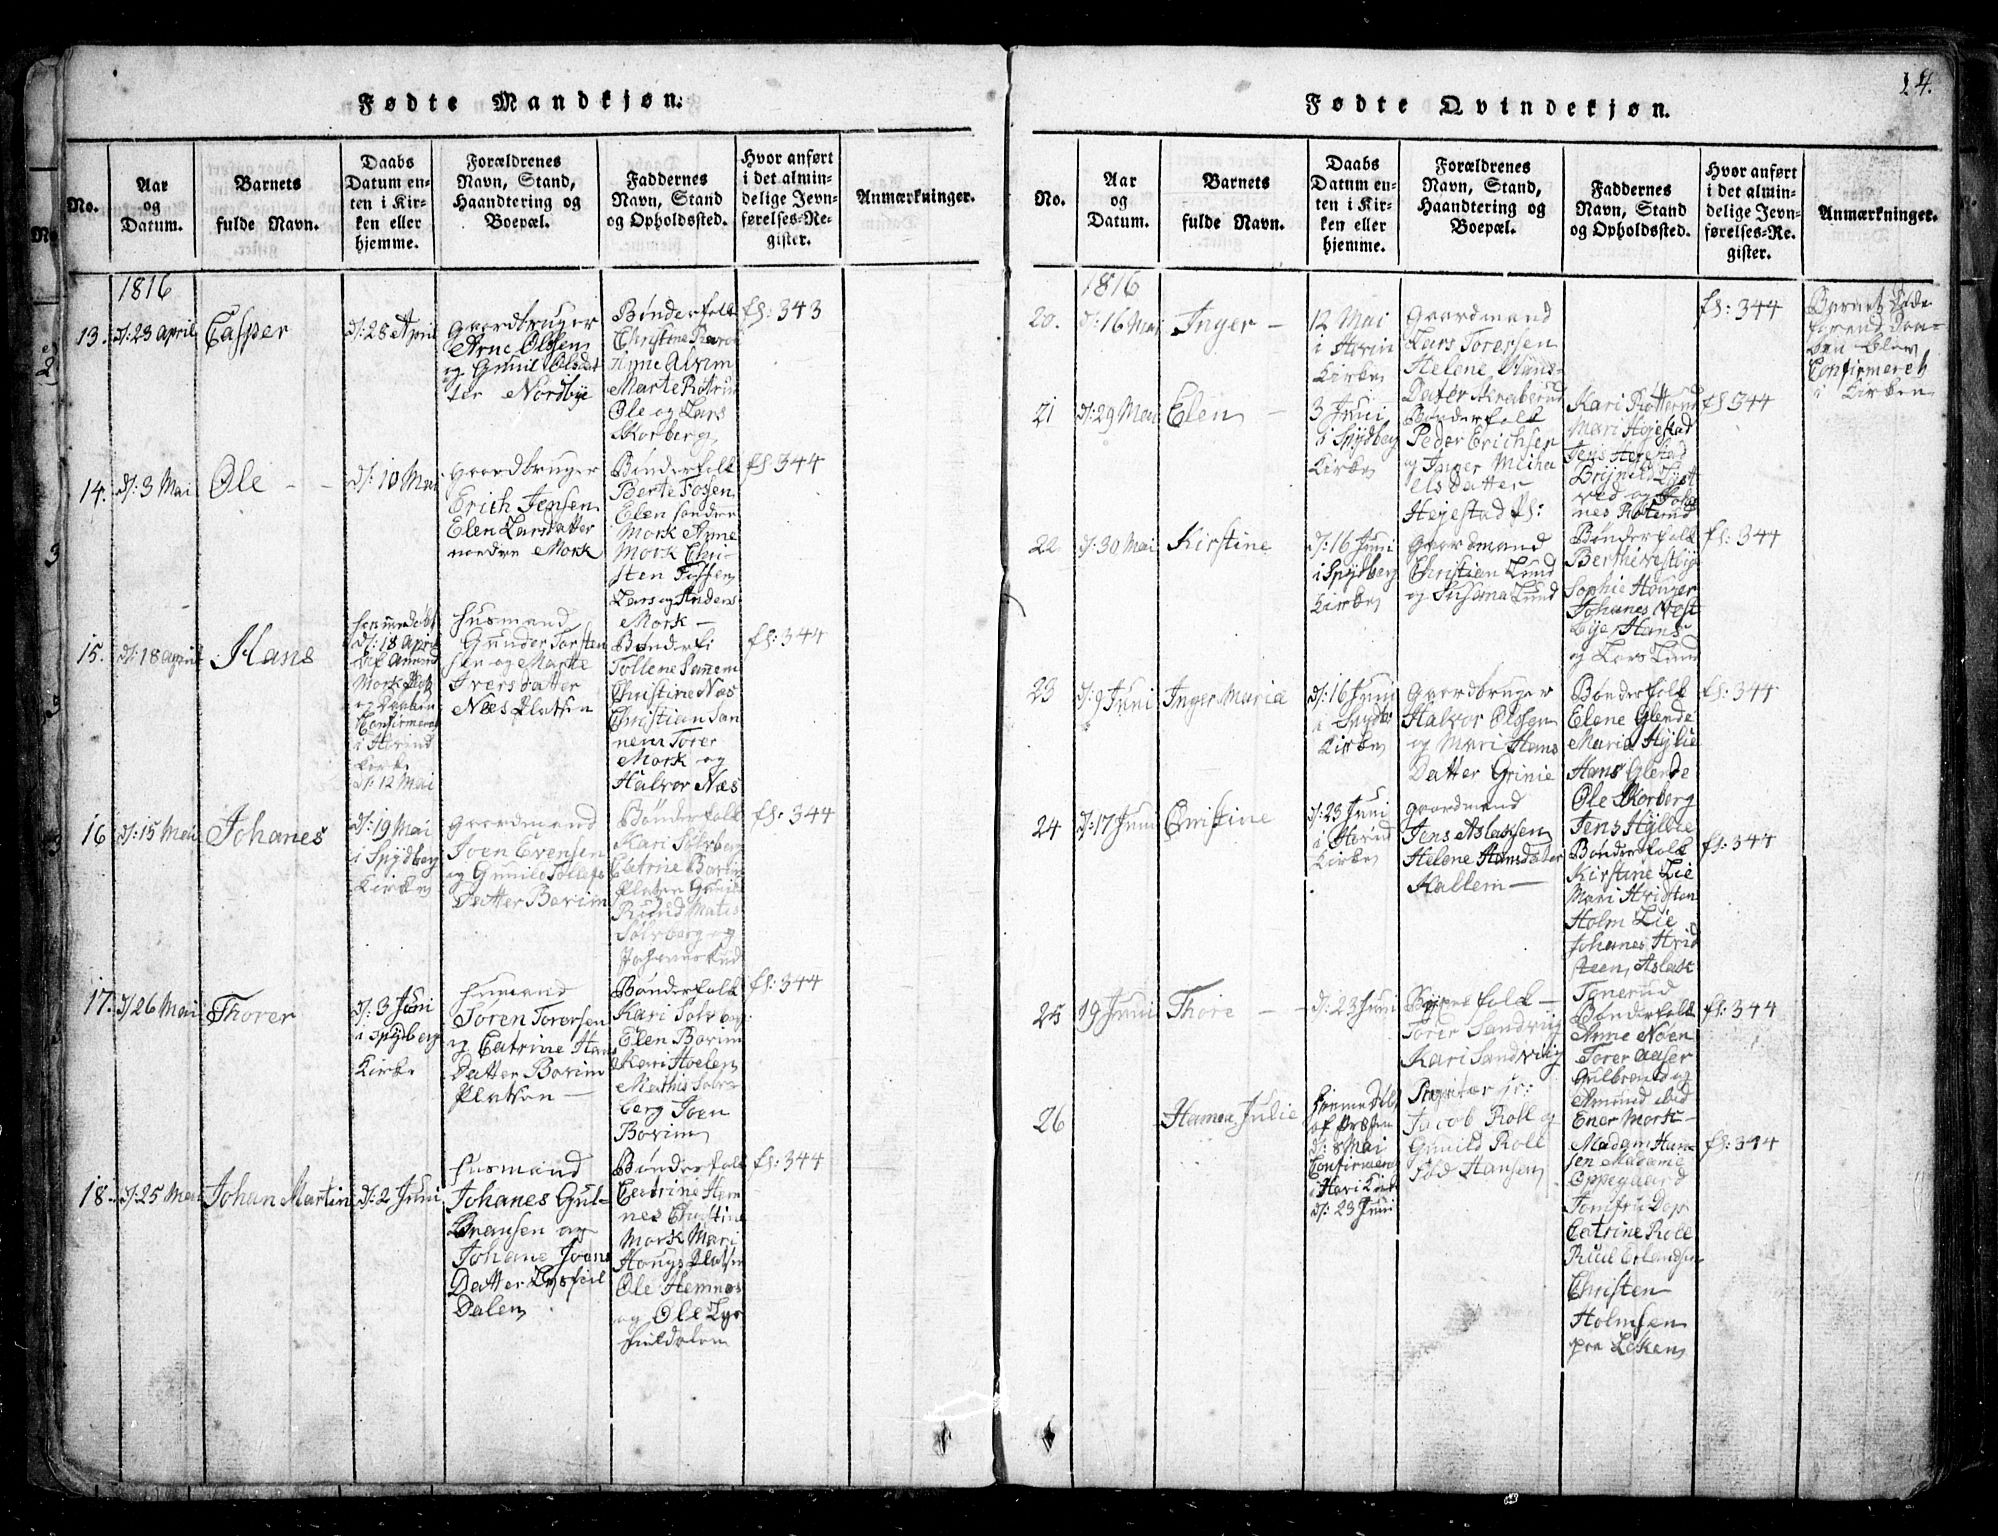 14.
Fødte Mandkjøn.
No.
Aar
og
Datum.
Barnets
fulde Navn.
Daabs
Datum en-
ten i Kir-
ken eller
hjemme.
Forældrenes
Navn, Stand,
Haandtering og
Boepæl.
Faddernes
Navn, Stand
og Opholdssted.
Hvor anført
i det almin-
delige Jevn-
førelses-Re-
gister.
Anmærkninger.
1816
13. d: 23 april
Casper
d: 28 April
Gaardbruger
Arne Olssen
og Gunil Olsdat
ter Nordbye
Bønderfolk
Christine
Anne
Marte
Ole og Lars
Skorberg
fl: 343
14. d: 3 Mai
Ole
d: 10 Mai
Gaardbruger
Erich Jensen
Elen Larsdatter
nordre Mork
Bønderfolk
Berte Fossen
Elen søndre
Mork Anne
Mork Chri-
sten Fossen
Lars og Anders
Mork
fl: 344
15. d: 18 april
Hans
hjemmedøbt
d: 18 April
af Amund
Mork
og Daaben
Confirmeret
i Hovind
Kirke
d: 12 Mai
Husmand
Gunder Torsten
sen og Marte
Iversdatter
Næs Platsen
Bønderf:
Tollene Sannem
Christine Næs
Christian San
nem Torer
Mork og
Halvor Næs
fl: 344
16 d: 15 Mai
Johanes
d: 19 Mai
i Spydberg
Kirke
Gaardmand
Joen Evensen
og Gunild Tollefs
Datter Bovim
Bønderfolk
Kari Solberg
Catrine Bovim
Platsen
Ruud Matis
Solberg og
fl: 344
17. d: 26 Mai
Thorer
d: 3 Juni
i Spydberg
Kirke
Husmand
Toren Torersen
og Catrine Hans
Datter Bovim
Platsen
Bønderfolk
Kari Solberg
Elen Bovim
Kari Hoelen
Mathis Sol-
berg Joen
Bovim
fl: 344
18. d: 25 Mai
Johan Martin
d: 2 Juni
Husmand
Johanes Gul-
bransen og
Johane Joens
Datter Lysfiel
Dalen
Bønderfolk
Catrine Hem
nes Christine
Mork Mari
Platsen
Ole Hemnæs
og Ole Lys
fieldalen
fl: 344
Fødte Qvindekjøn.
No.
Aar
og
Datum.
Barnets
fulde Navn.
Daabs
Datum en-
ten i Kir-
ken eller
hjemme.
Forældrenes
Navn, Stand,
Haandtering og
Boepæl.
Faddernes
Navn, Stand
og Opholdssted.
Hvor anført
i det almin-
delige Jevn-
førelses-Re-
gister.
Anmærkninger.
1816
20. d: 16 Mai
Inger
12 Mai
i Hovin
Kirke
Gaardmand
Lars Torersen
Helene Hans-
Datter
fl: 344
Barnet
Confirmeret
i Kirken
21 d: 29 Mai
Elen
3 Juni
i Spydberg
Kirke
Bønderfolk
Peder Erichsen
og Inger Michel
elsdatter
Højestad
Kari Rotterud
Mari Højestad
Jens Højestad
Brynild Lyst
ved og Joha
nes Roterud
fl: 344
22 d: 30 Mai
Kirstine
d: 16 Juni
i Spydberg
Kirke
Gaardmand
Christian Lund
og Susanna Lund
Bønderfolk
Berthe Vestbye
Sophie
Johanes Vest
bye Hans
og Lars Lund
fl: 344
23 d: 9 Juni
Inger Maria
d: 16 Juni
i Spydb
Kirke
Gaardbruger
Halvor Olssen
og Mari Hans
Datter Grinie
Bønderfolk
Elene Glende
Maria Hylie
Hans Glende
Ole Skorberg
Jens Hyllie
fl: 344
24 d: 17 Juni
Christine
d: 23 Juni
i Hovind
Kirke
Gaardmand
Jens Aslaksen
Helene Hansdater
Kallem
Bønderfolk
Kirstine Lie
Mari
Holm Lie
Johanes
Aslak
Tonerud
fl: 344
25 19 Juni
Thore
d: 23 Juni
Torer Sandvig
Kari Sandvig
Bønderfolk
Anne Noen
Torer Aaser
Gulbrand og
Amund ibid
Ener Mork
fl: 344
26
Hanna Julie
Hjemmedøbt
af
d: 8 Mai
Confirmeret
i Hovi Kirke
d: 23 Juni
Jacob Roll og
Gunild Roll
fød Hansen
Madam Han-
sen Madame
Oppegaard
Jomfru
Catrine Roll
Poul Erlandsen
Christen
Holmsen
paa Løken
fl: 344